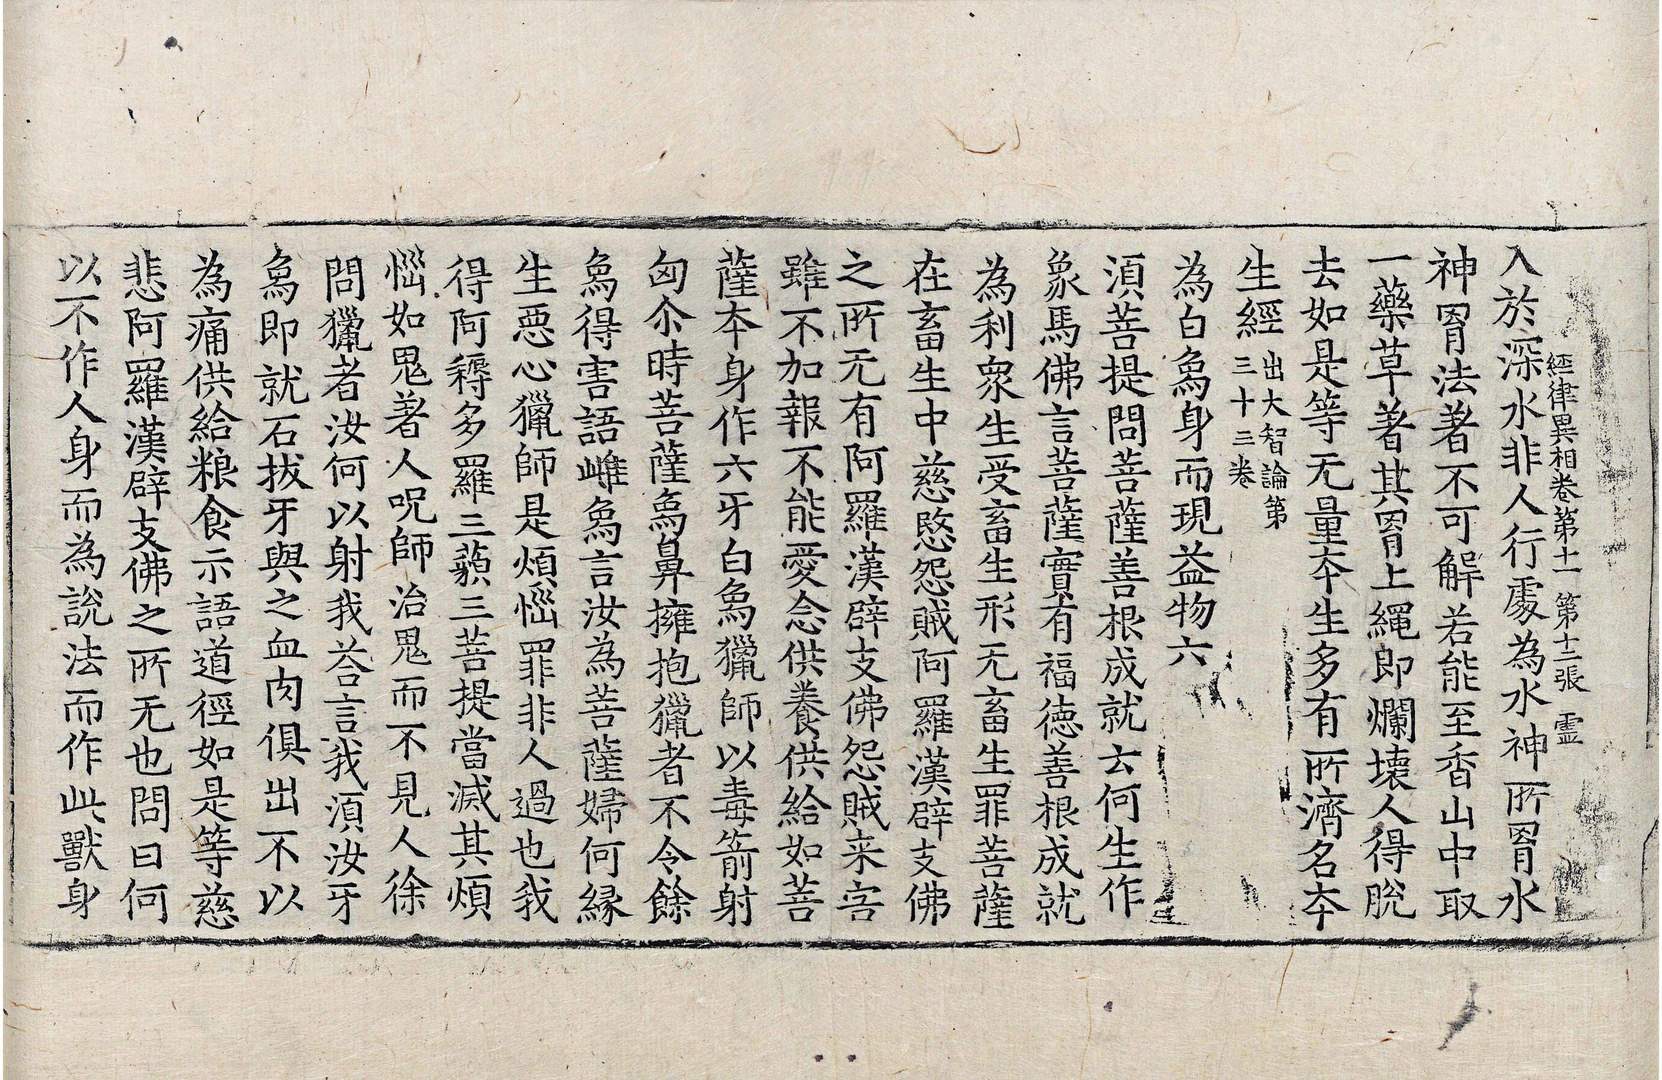 經律異相卷第十一 第十二張 霊
入於深水非人行處為水神所罥水
神罥法著不可解若能至香山中取
一藥草著其罥上繩即爛壞人得脫
去如是等无量夲生多有所濟名夲
生經出大智論第三十三卷
為白象身而現益物六
湏菩提問菩薩善根成就云何生作
象馬佛言菩薩實有福徳善根成就
為利衆生受畜生形无畜生罪菩薩
在畜生中慈愍怨賊阿羅漢辟支佛
之所无有阿羅漢辟支佛怨賊来害
雖不加報不能愛念供養供給如菩
薩夲身作六牙白象獵師以毒箭射
匈尒時菩薩象鼻擁抱獵者不令餘
象得害語雌象言汝為菩薩婦何縁
生惡心獵師是煩惱罪非人過也我
得阿耨多羅三藐三菩提當滅其煩
惱如鬼著人呪師治鬼而不見人徐
問獵者汝何以射我荅言我湏汝牙
象即就石拔牙與之血肉俱出不以
為痛供給粮食示語道徑如是等慈
悲阿羅漢辟支佛之所无也問曰何
以不作人身而為說法而作此獸身